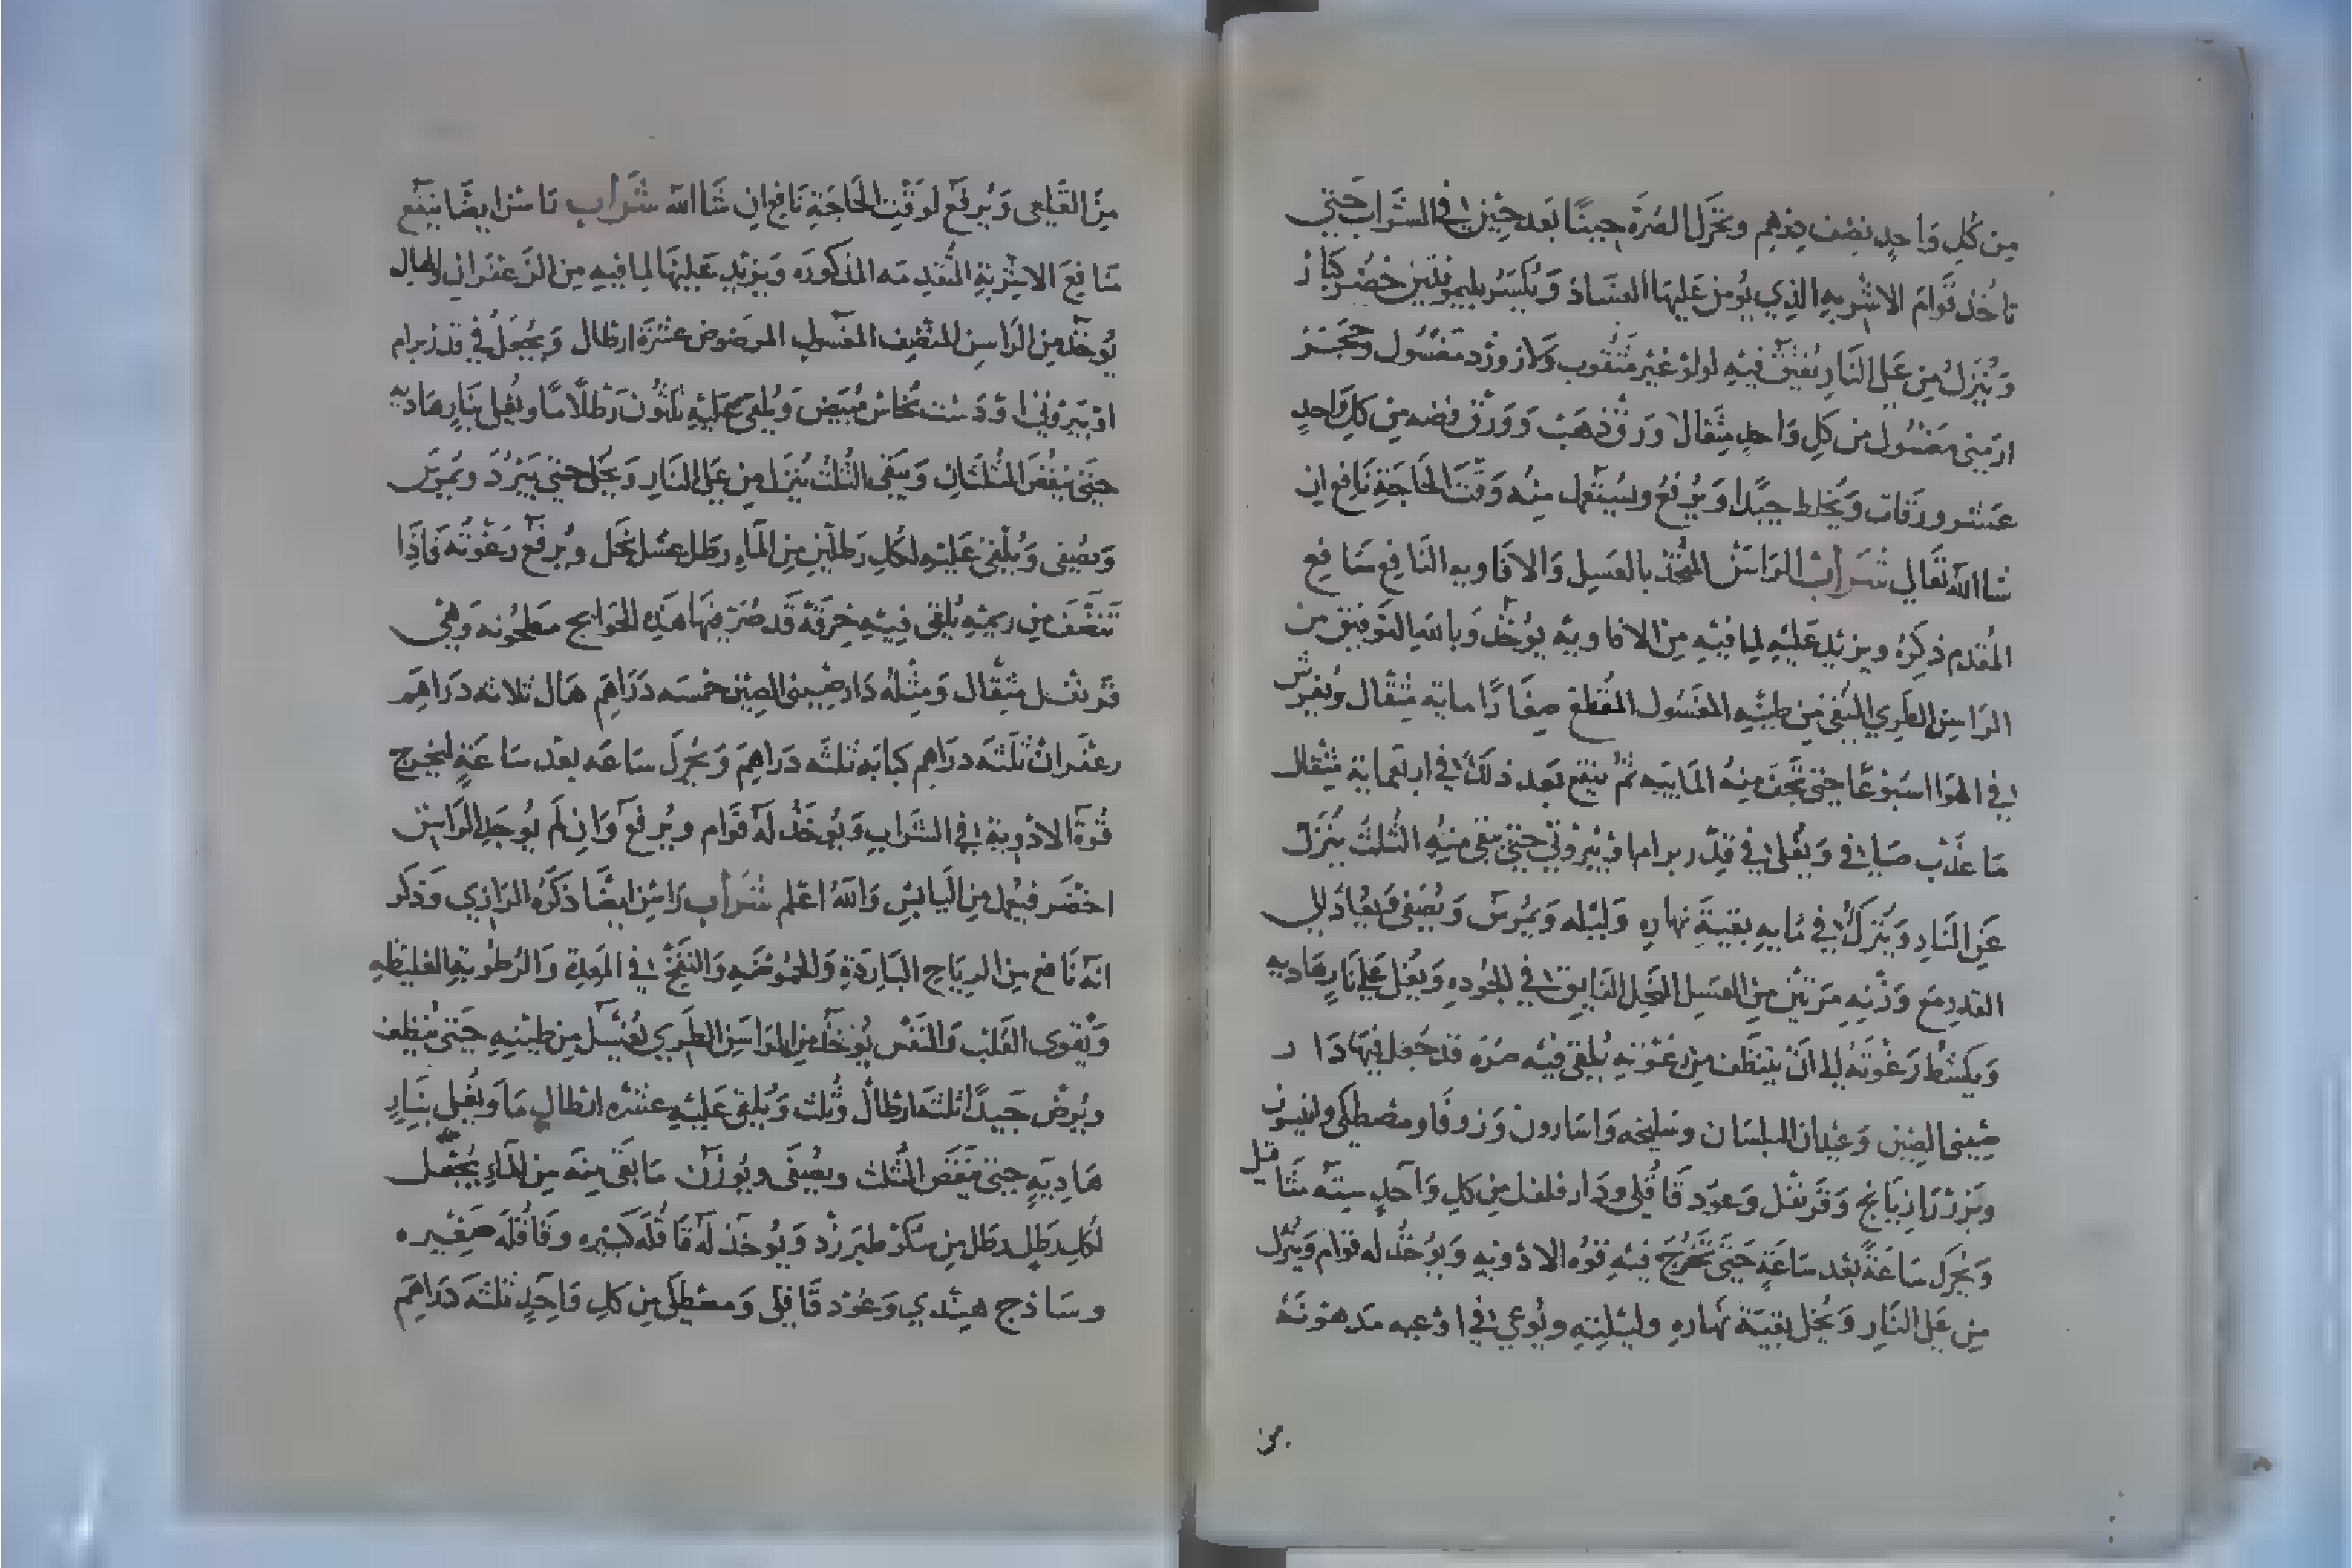 من كل واحد نصف درهم وتحرك الصرة حينًا بعد حين في الشراب حتى
تاخذ قوام الاشربه الذي يومن عليها الفساد ويكسر بليموتين خضر كبار
وينزل من على النار يفتق فيه لولو غير مثقوب ولازورد مغسول وحجر
ارمنى مغسول من كل واحد مثقال ورق ذهب وورق فضه من كل واحد
عشر ورقات ويخلط جيدا ويرفع ويستعمل منه وقت الحاجة نافع ان
شا الله تعالى شراب الراسن المتخذ بالعسل والافاويه النافع منافع
المقدم ذكره ويزيد عليه لما فيه من الافاويه يوخذ وبالله التوفيق من
الراسن الطري المنقى من طينه المغسول المقطع صغارًا ماية مثقال ويفرش
في الهوا اسبوعًا حتى تجف منه المايبه ثم ينقع بعد ذلك في اربعماية مثقال
ما عذب صافي ويغلى في قدر برام او بيروتي حتى يبقى منه الثلث ينزل
عن النار ويترك في مايه بقية نهاره وليله ويمرس ويصفى ويعاد الى
القدر مع وزنه مرتين من العسل النحل الفايق في الجوده ويغلى على نار هاديه
ويكشط رغوته الى ان يتنظف من رغوته يلقى فيه صره قد جعل فيها دار
صينى الصين وعيدان البلسان وسليخه واسارون وزوفا ومصطكى وانيسون
وبزر رازيانج وقرنفل وعود قاقلى ودار فلفل من كل واحد سته مثاقيل
وتحرك ساعة بعد ساعة حتى تخرج فيه قوه الادويه ويوخذ له قوام وينزل
من على النار ويخل بقية نهاره وليلته ويوعي في اوعيه مدهونه
من
من القلعى ويرفع لوقت الحاجة نافع ان شا الله شراب راسن ايضًا ينفع
منافع الاشربة المتقدمه المذكوره ويزيد عليها لما فيه من الزعفران والهال
يوخذ من الراسن المنظف المغسول المرضوض عشرة ارطال ويجعل في قدر برام
او بيروتي او دست نحاس مبيض ويلقى عليه ثلثون رطلًا ما ويغلى بنار هاديه
حتى ينقص الثلثان ويبقى الثلث ينزل من على النار ويخل حتى يبرد ويمرس
ويصفى ويلقى عليه لكل رطلين من الماء رطل عسل نحل ويرفع رغوته فاذا
تنظف من ريمه يلقى فيه خرقة قد صر فيها هذه الحوايج مطحونه وهي
قرنفل مثقال ومثله دارصينى الصين خمسه دراهم هال ثلاثه دراهم
زعفران ثلثه دراهم كبابه ثلثه دراهم ويحرك ساعه بعد ساعة ليخرج
قوة الادوية في الشراب ويوخذ له قوام ويرفع وان لم يوجد الراسن
اخضر فيعمل من اليابس والله اعلم شراب راسن ايضًا ذكره الرازي وذكر
انه نافع من الرياح الباردة والحموضه والنفخ في المعدة والرطوبه الغليظه
ويقوى القلب والنفس يوخذ من الراسن الطري يغسل من طينه حتى ينظف
ويرض جيدًا ثلثه ارطال وثلث ويلقى عليه عشره ارطال ما ويغلى بنار
هاديه حتى ينقص الثلث ويصفى ويوزن ما بقى منه من الماء يجعل
لكل رطل رطل من سكر طبرزد ويوخذ له قاقله كبيره وقاقله صغيره
وساذج هندي وعود قاقلى ومصطكى من كل واحد ثلثه دراهم